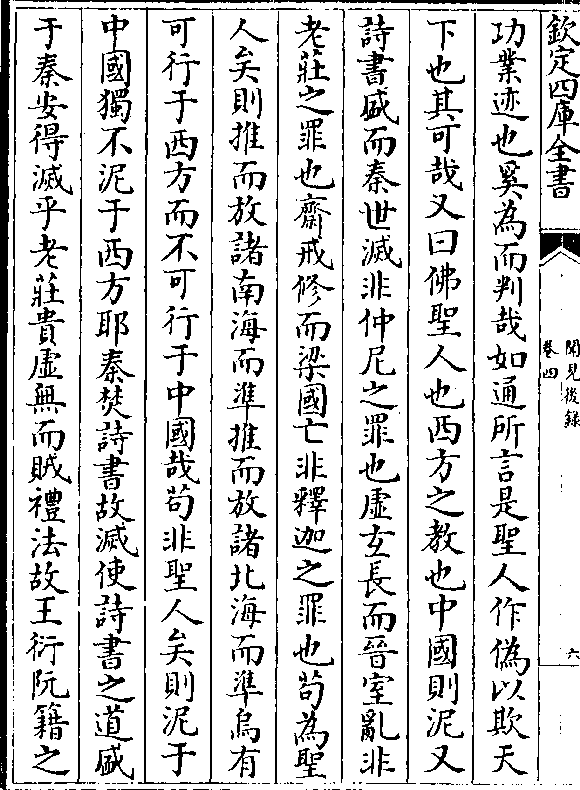 欽定四庫全書
聞見後錄
卷四
六
功業迹也奚為而判哉如通所言是聖人作偽以欺天
下也其可哉又曰佛聖人也西方之教也中國則泥又
詩書盛而秦世滅非仲尼之罪也虛玄長而晉室亂非
老莊之罪也齋戒修而梁國亡非釋迦之罪也茍為聖
人矣則推而放諸南海而準推而放諸北海而準烏有
可行于西方而不可行于中國哉茍非聖人矣則泥于
中國獨不泥于西方耶秦焚詩書故滅使詩書之道盛
于秦安得滅乎老莊貴虛無而賊禮法故王衍阮籍之